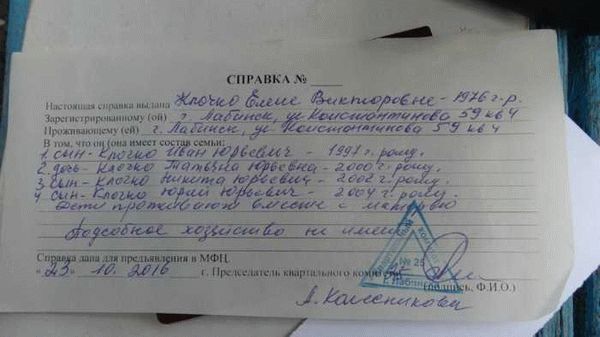 СПРАВКА № ____
Настоящая справка выдана Клочко Елене Викторовне - 1976 г.р.
Зарегистрированному (ой) г. Лабинск, ул Константинова 59 кв 4
Проживающему (ей) г. Лабинск, ул Константинова 59 кв 4
В том, что он (она имеет состав семьи:
1. сын - Клочко Иван Юрьевич - 1997 г. рожд.
2. дочь - Клочко Татьяна Юрьевна - 2000 г. рожд.
3. сын - Клочко Никита Юрьевич - 2002 г. рожд.
4. сын - Клочко Юрий Юрьевич - 2004 г. рожд.
Дети проживают вместе с матерью
Подсобное хозяйство не имеет
Справка дана для предъявления в МФЦ.
"23" 10. 2016 г. Председатель квартального комитета
№ 25
г. Лабинск
(подпись, Ф.И.О.)
А. Колесникова